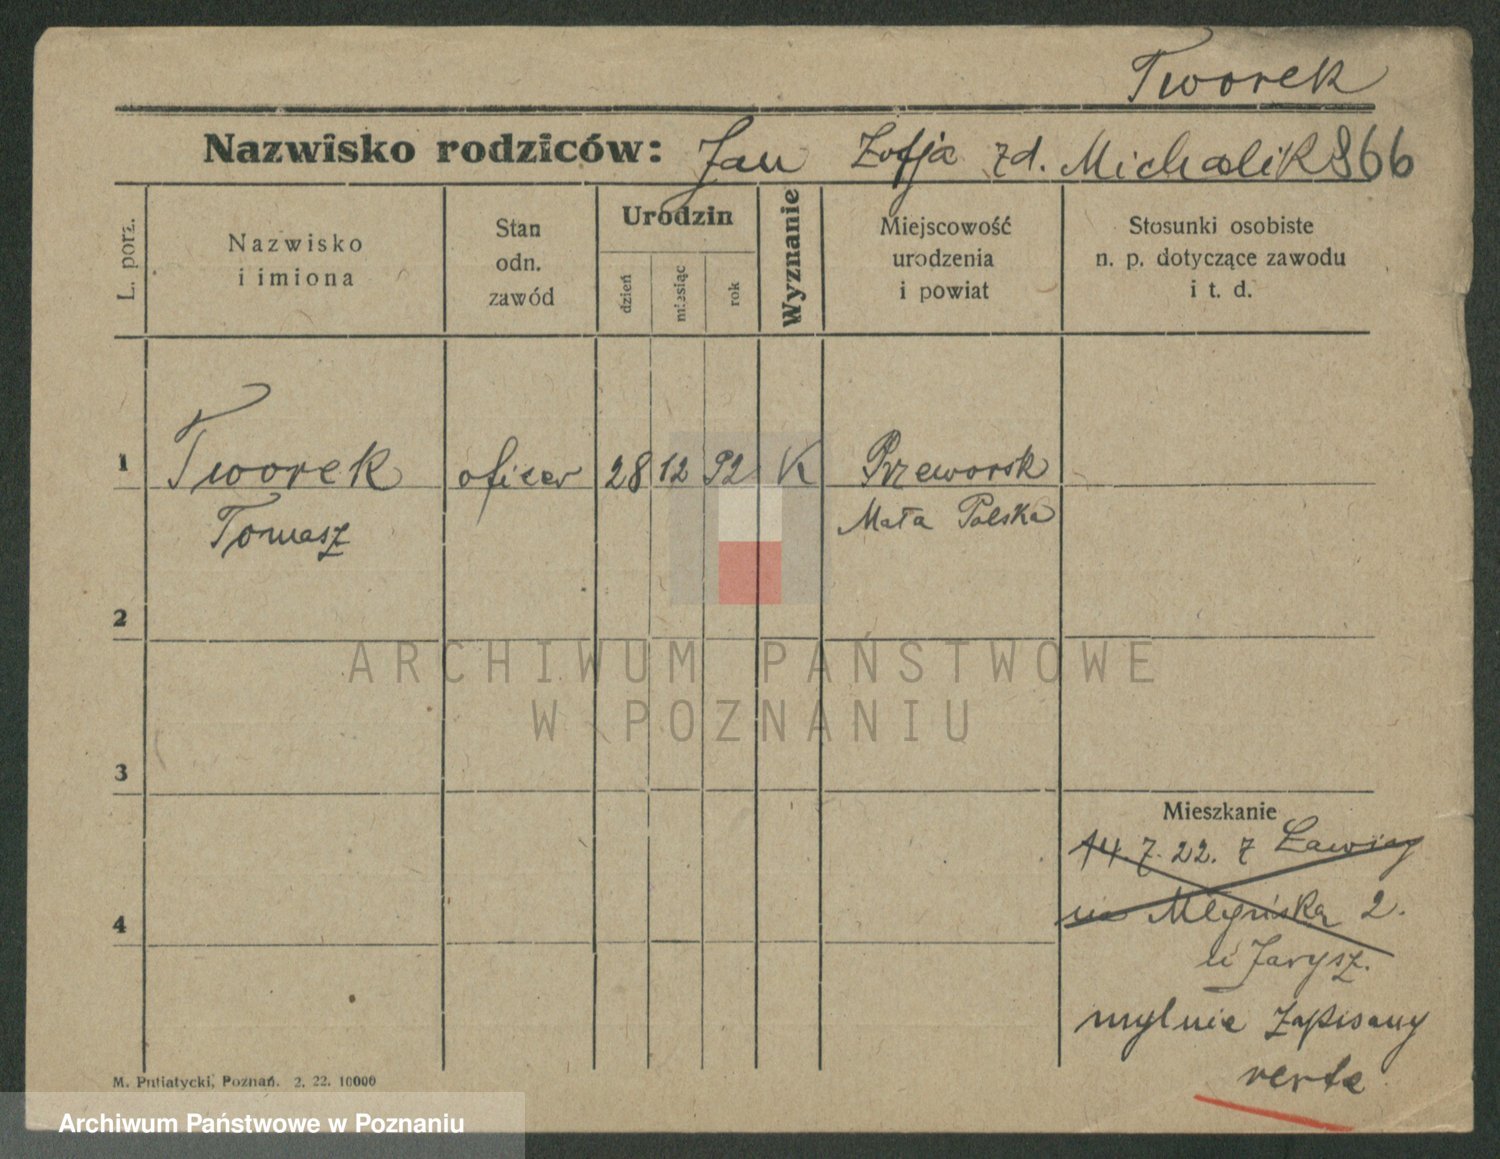 Tworek
Nazwisko rodziców: Jan Zofja zd. Michalik 866
L. porz.
Nazwisko
i imiona
Stan
odn.
zawód
Urodzin
dzień
miesiąc
rok
Wyznanie
Miejscowość
urodzenia
i powiat
Stosunki osobiste
n. p. dotyczące zawodu
i t. d.
1 Tworek oficer 28 12 92 K Przeworsk
Tomasz Mała Polska
2
ARCHIWUM PAŃSTWOWE
W POZNANIU
3
Mieszkanie
14 7. 22. z Ławicy
na Młyńska 2.
4
u Jarysz.
mylnie zapisany
verte
M. Putiatycki, Poznań. 2. 22. 10000
Archiwum Państwowe w Poznaniu